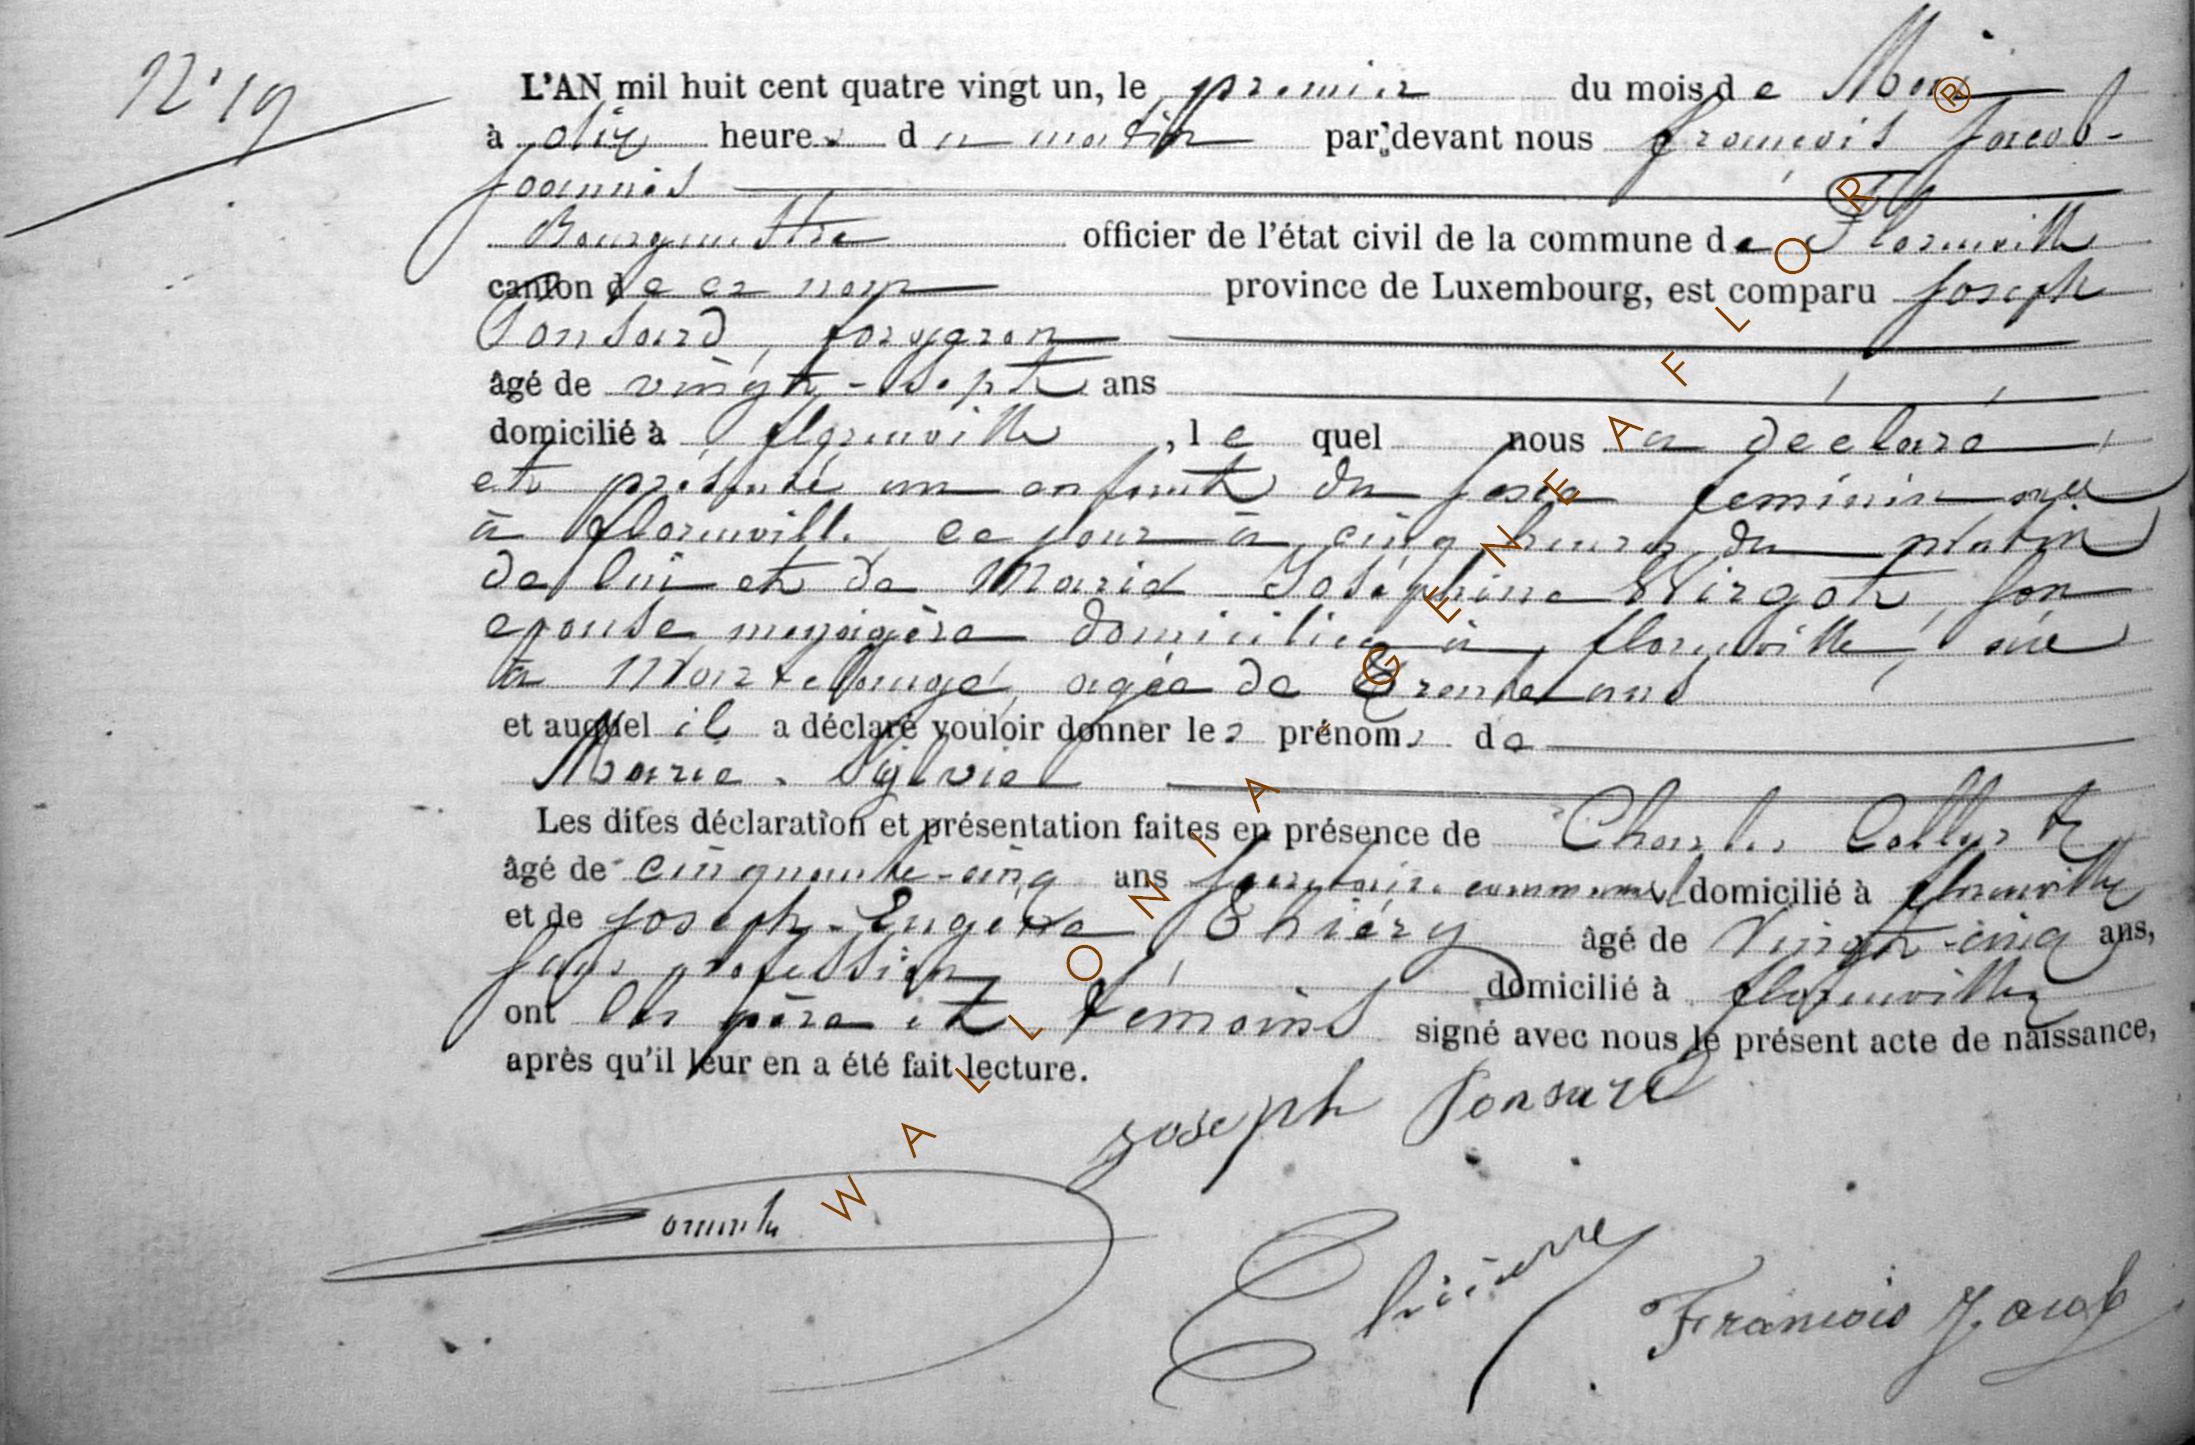 N° 19
L'AN mil huit cent quatre vingt un, le premier du mois de
à dix heures du matin par-devant nous François Jacob-
Joannès
Bourgmestre officier de l'état civil de la commune de Florenville
canton de ce nom province de Luxembourg, est comparu Joseph
Ponsard, forgeron
âgé de vingt-sept ans
domicilié à Florenville, lequel nous a déclaré
et présenté un enfant du sexe féminin née
à Florenville ce jour à cinq heures du matin
de lui et de Marie Joséphine Wirgot, son
épouse ménagère domiciliée à Florenville, née
à Martelange, agée de Trente ans
et auquel il a déclaré vouloir donner les prénoms de
Marie-Sylvie
Les dites déclaration et présentation faites en présence de Charles
âgé de cinquante-cinq ans communal domicilié à Florenville
et de Joseph-Eugène Thiéry âgé de Vingt-cinq ans,
sans profession domicilié à Florenville
ont les père et témoins signé avec nous le présent acte de naissance,
après qu'il leur en a été fait lecture.
Joseph Ponsard
François Jacob
WALLONIA GENEAFLOR ®